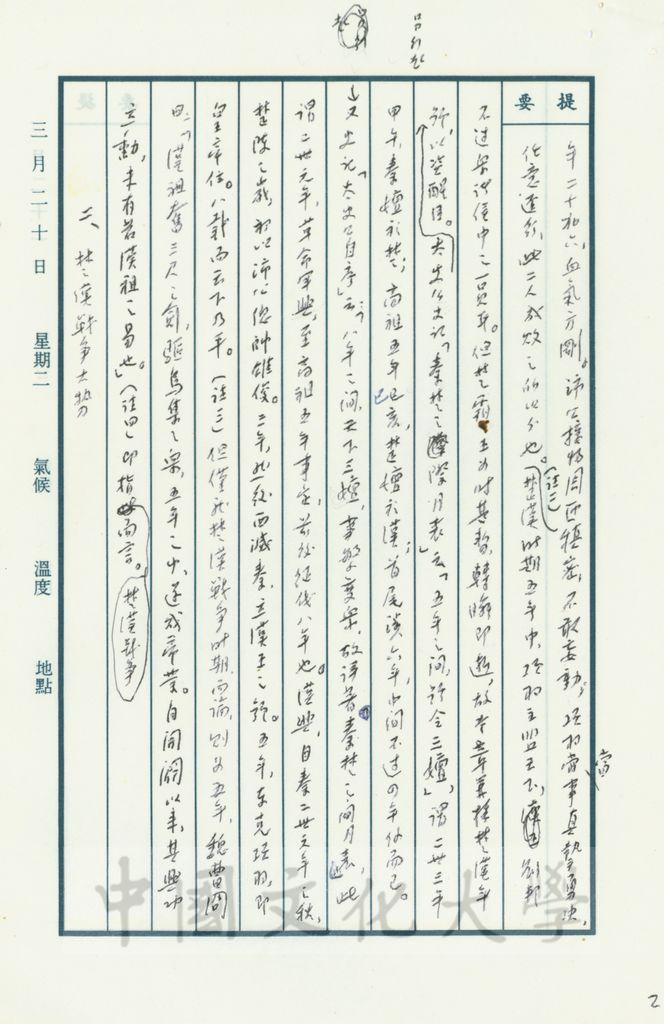 提要
年二十有六,血氣方剛。沛公接物周匝穩密,不敢妄動。項羽當事真摯勇決,
任意逕行,此二人成敗之所以分也。(註二)楚漢時期五年中,項羽主盟天下,劉邦
不過諸侯中之一員耳。但楚霸王為時甚暫,轉瞬即逝,故本章
號,以資醒目。太史公史記「秦楚之際月表」云「五年之間,號令三嬗」,謂二世三年
甲午,秦嬗於楚;高祖五年己亥,楚嬗於漢,首尾涉六年,中間不過四年份而已。
又史記「太史公自序」云:「八年之間,天下三嬗,事繁變眾,故詳著秦楚之間月表」,此
謂二世元年,革命軍興,至高祖五年事定,前後經後八年也。漢興,自秦二世元年之秋,
楚陳之歲,初以沛公總帥雄俊。三年,然後西滅秦,立漢王之號。五年,東克項羽,即
皇帝位。八載而天下乃平。(註三)但僅就楚漢戰爭時期而論,則為五年,魏曹冏
曰:「漢祖奮三尺之劍,驅烏集之眾,五年之中,遂成帝業。自開闢以來,其興功
立勳,未有若漢祖之易也」。(註四)即指楚漢戰爭而言。
二、楚漢戰爭大勢
三月二十日 星期二 氣候 溫度 地點
中國文化大學
2